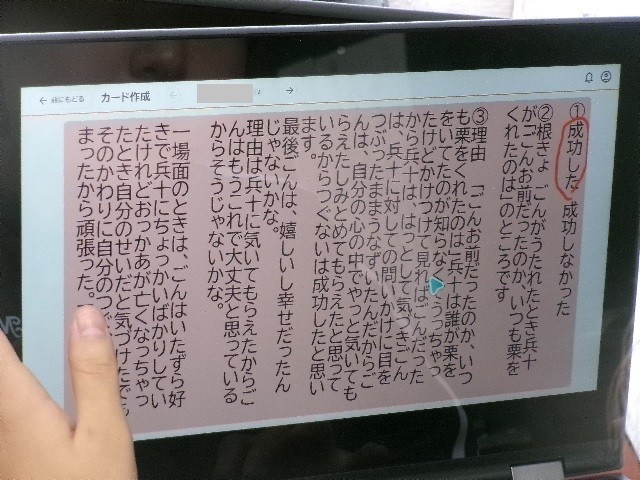 前にもどる
カード作成
①成功した 成功しなかった
②根きょ ごんがうたれたとき兵十
が「ごんお前だったのか、いつも栗を
くれたのは」のところです。
③理由 「ごんお前だったのか、いつ
も栗をくれたのは」兵十は誰が栗を
をいてたのが知らなくて
たけどかけつけて見れば、ごんだった
から兵十は、はっとして気づきごん
は、兵十に対しての問いかけに目を
つぶったままうなずいたんだからご
んは、自分の心の中でやっと気いても
らえたしみとめてもらえたと思って
いるからつぐないは成功したと思い
ます。
最後ごんは、嬉しいし幸せだったん
じゃないかな。
理由は兵十に気いてもらえたからご
んはもうこれで大丈夫と思っている
からそうじゃないかな。
一場面のときは、ごんはいたずら好
きで兵十にちょっかいばかりしてい
たけれどおっかあが亡くなっちゃっ
たとき自分のせいだと気づけた
そのかわりに自分のつ
まったから頑張った。